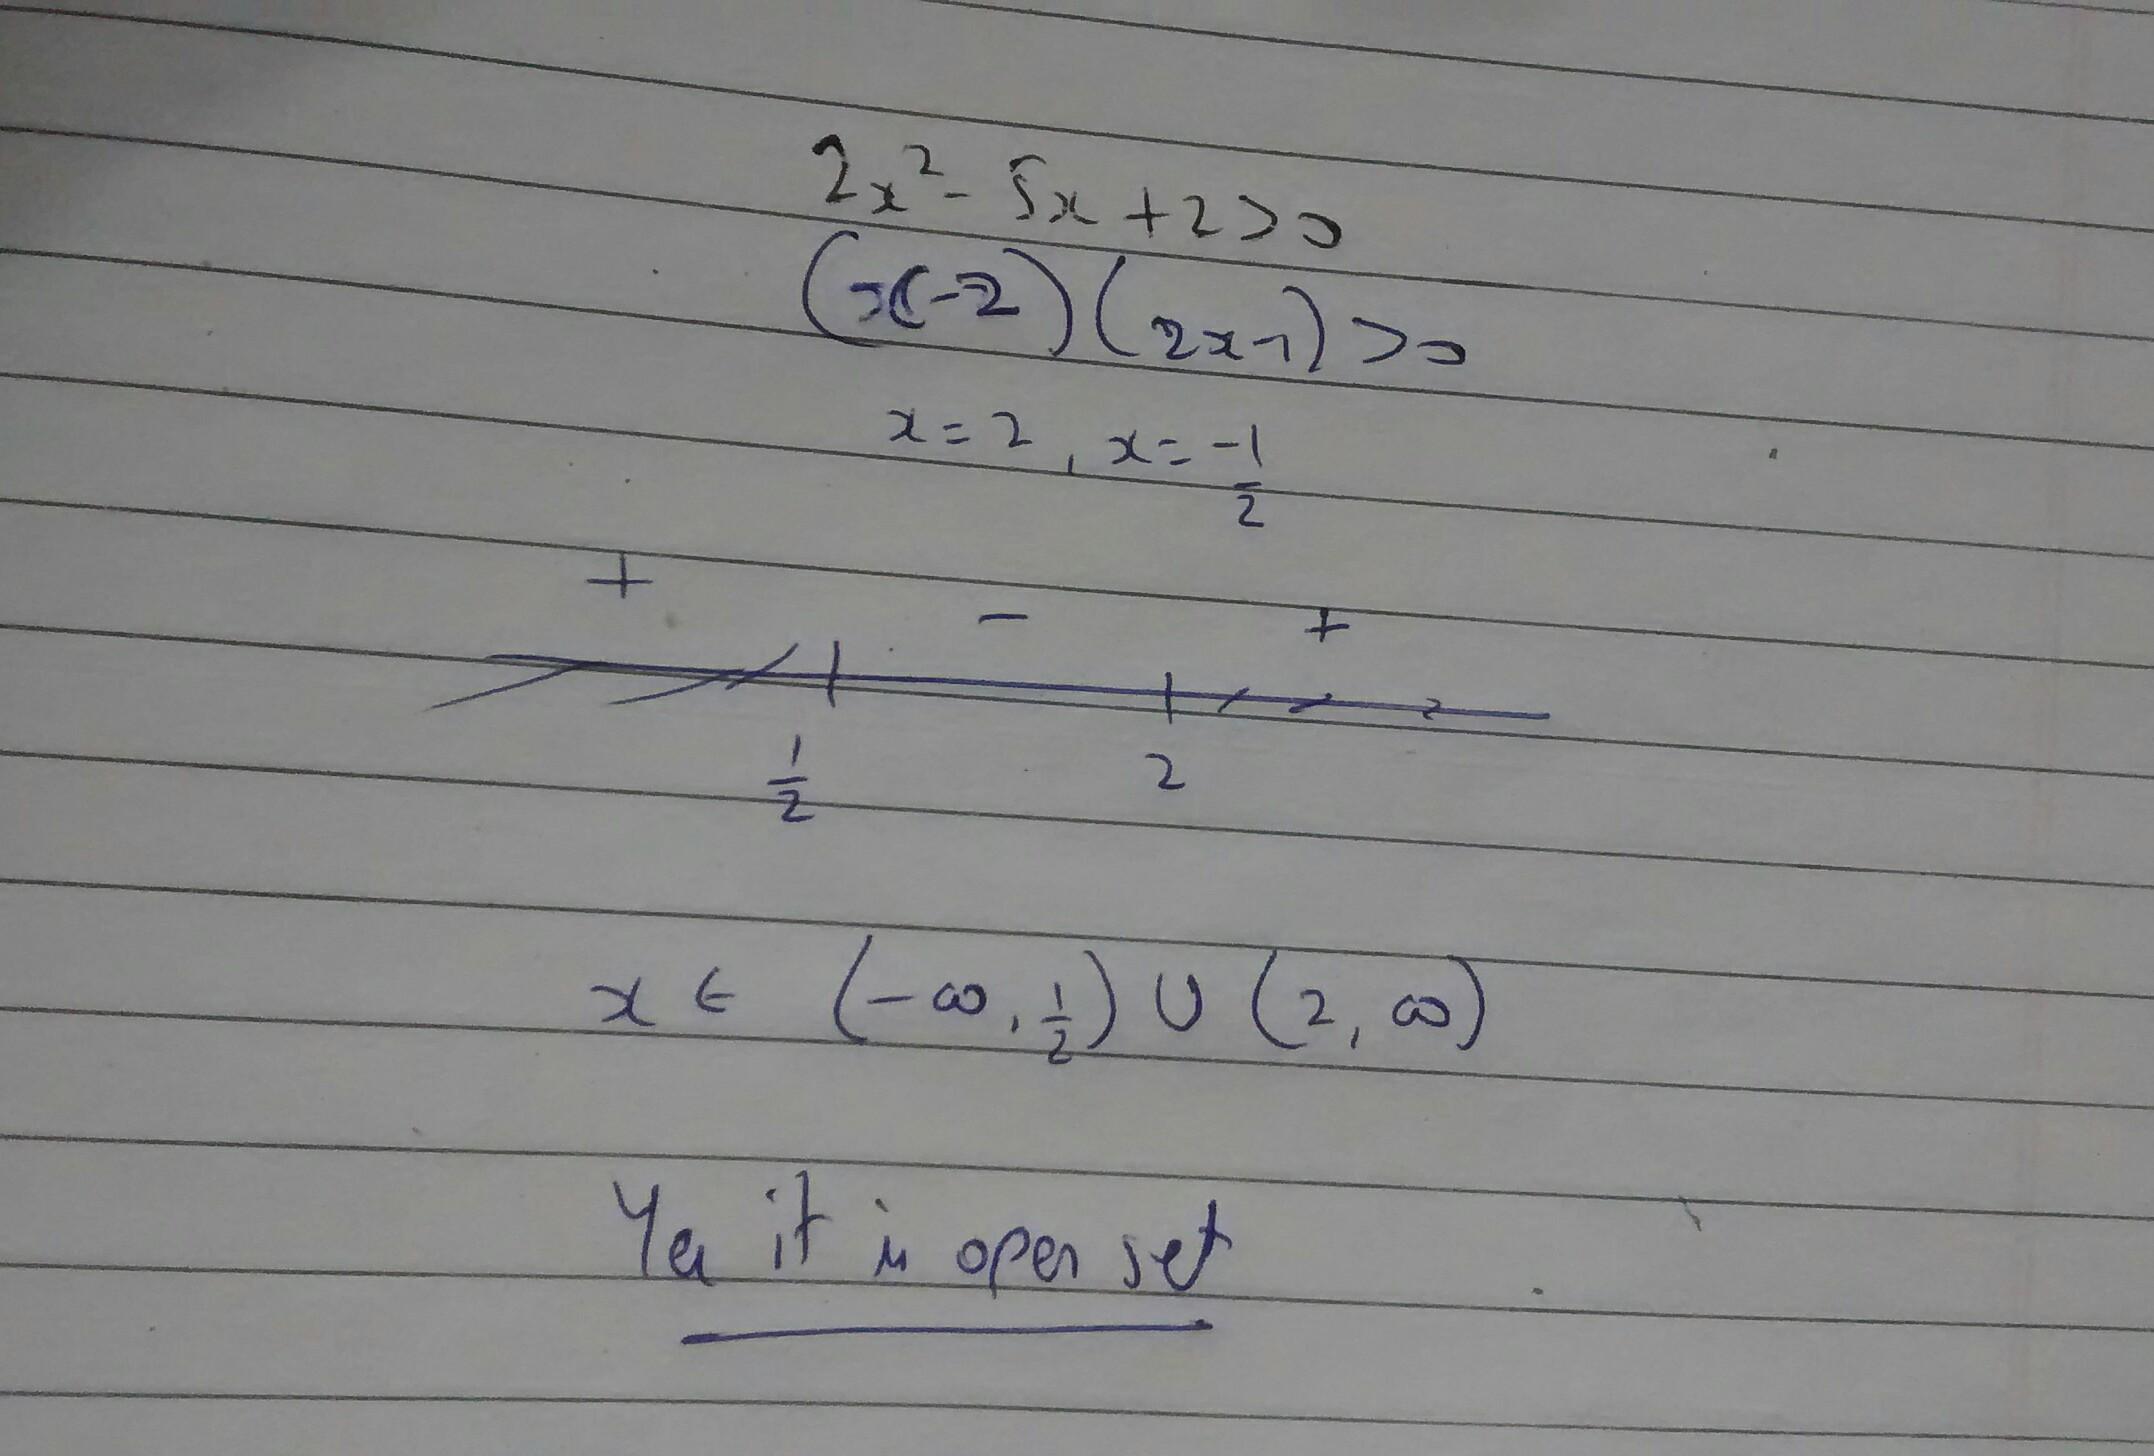 2x² - 5x + 2 > 0
(x-2) (2x-1) > 0
x = 2 , x = -1/2
+ - +
1/2 2
x ∈ (-∞, 1/2) ∪ (2, ∞)
Yes it is open set